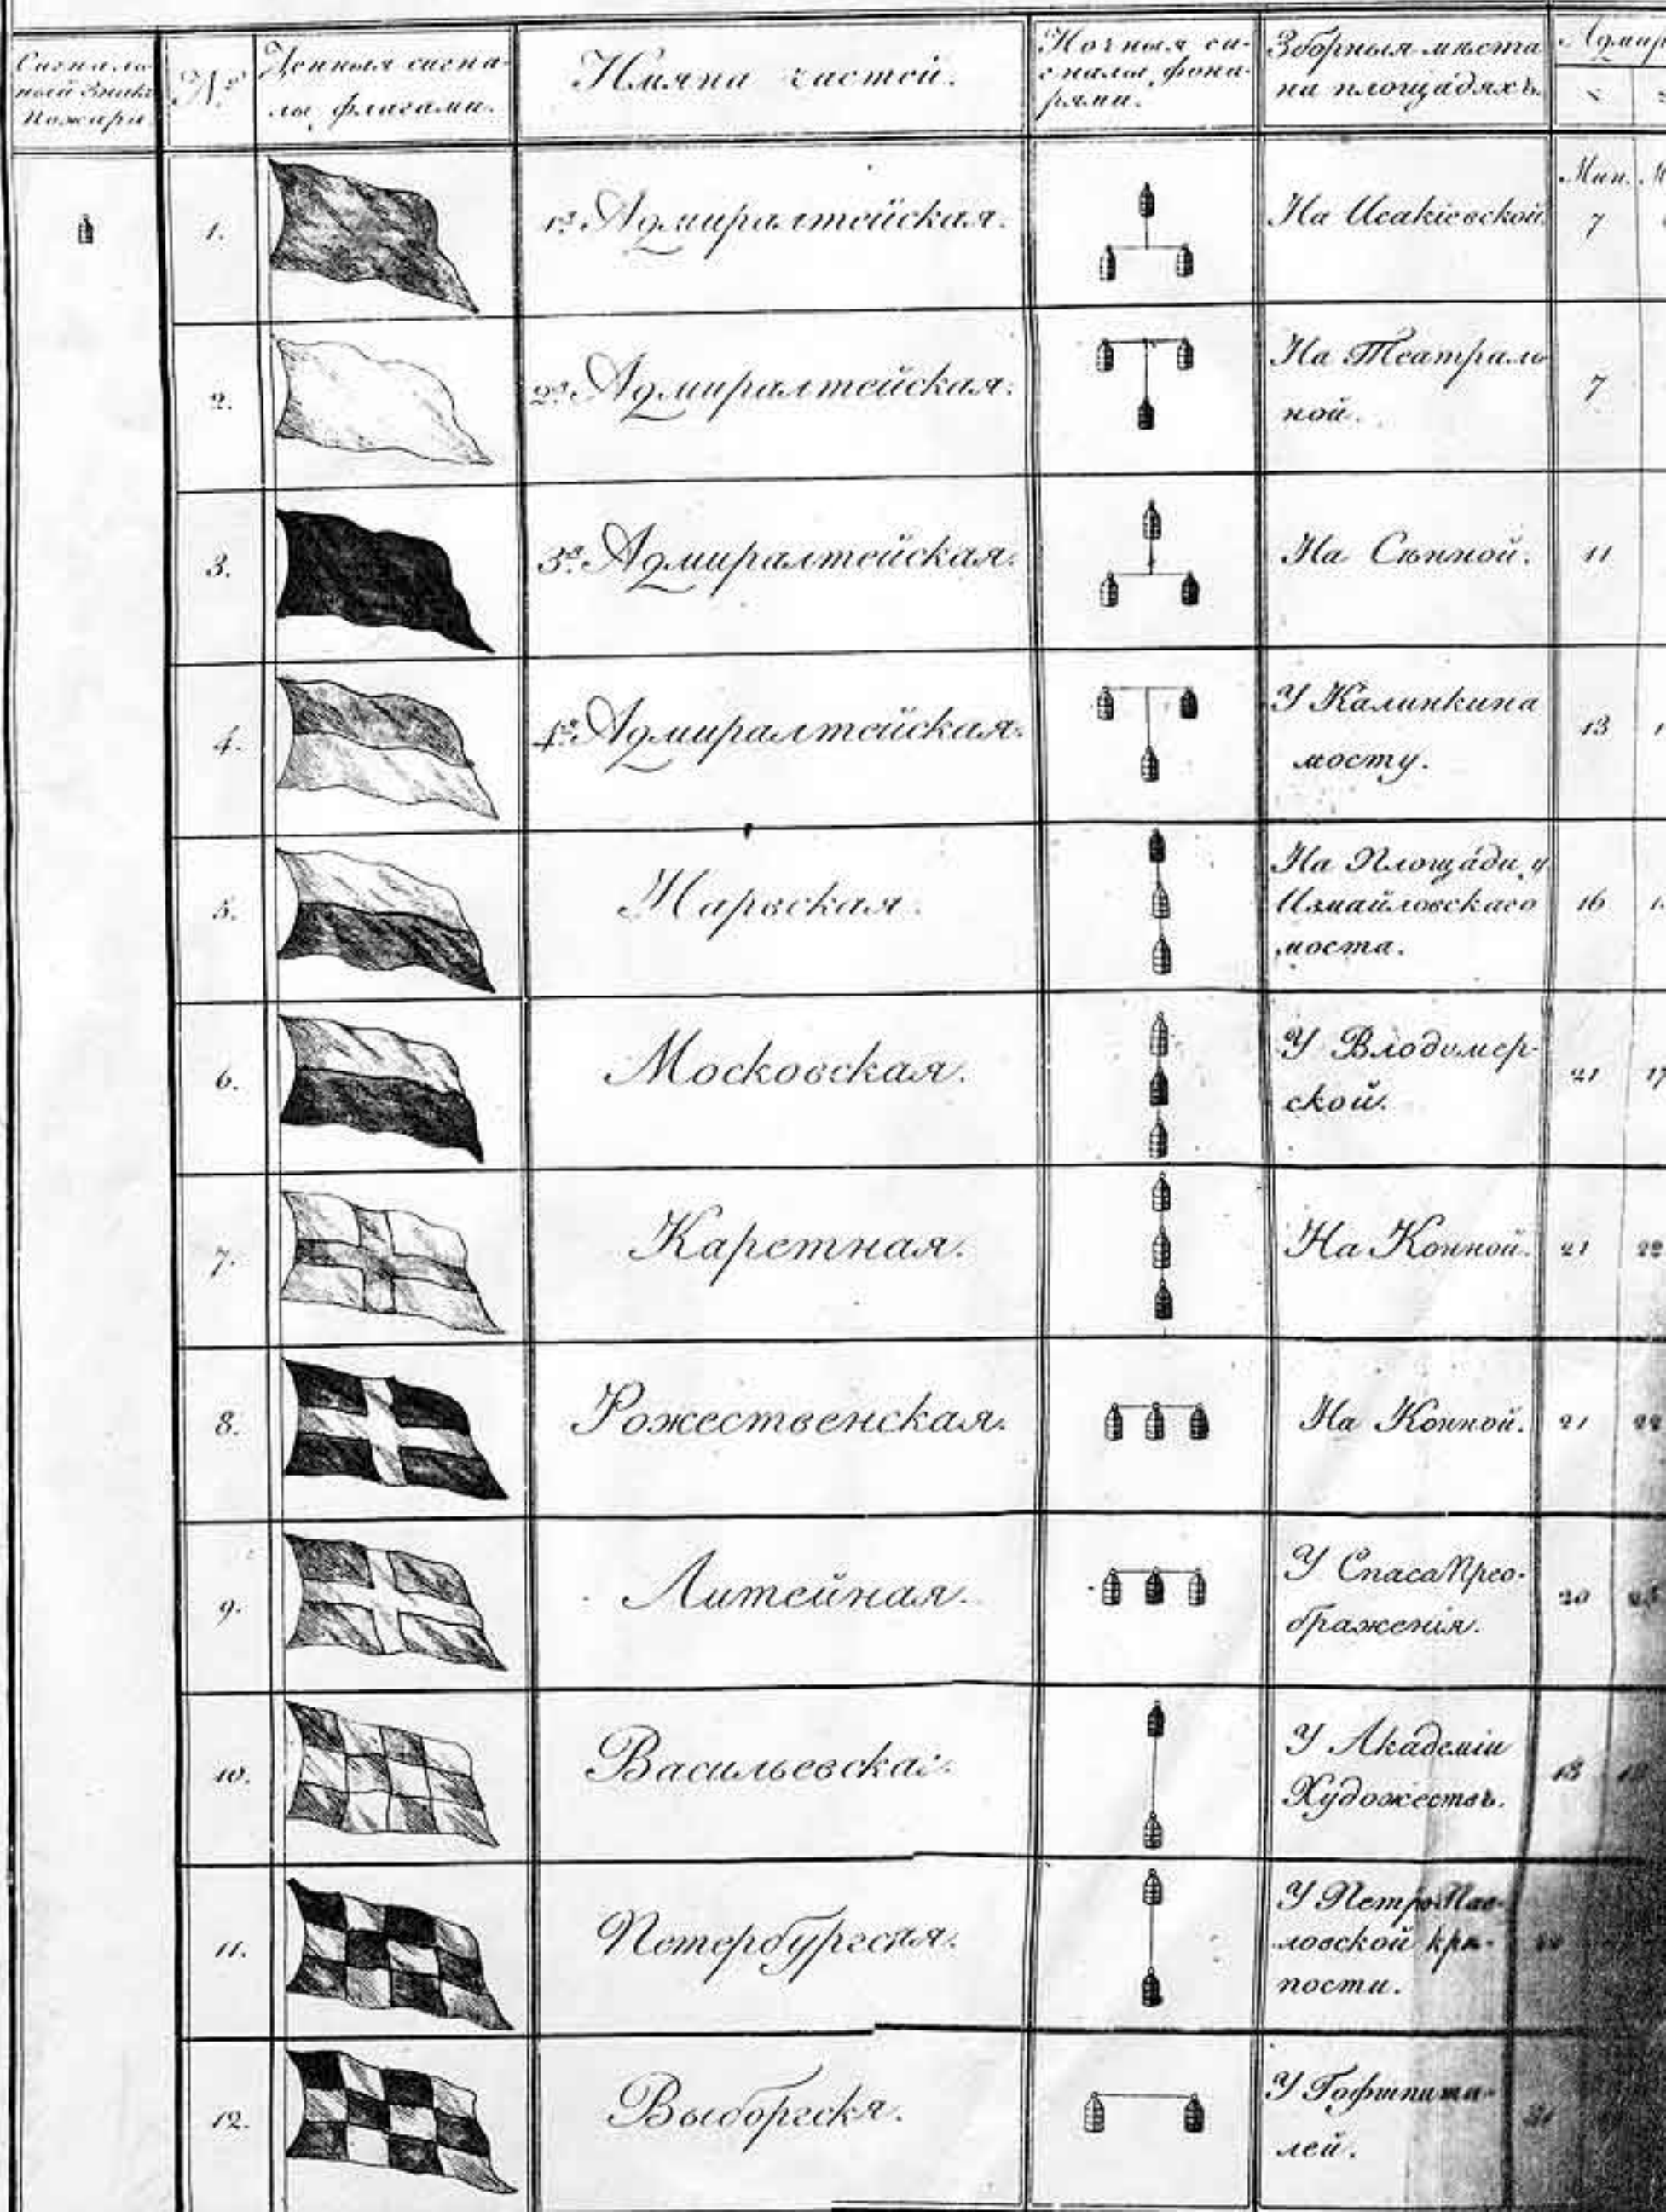 Сигналь-
ный знакъ
Пожара
№
Денныя сигна-
лы флагами.
Имяна частей.
Ночныя си-
гналы фона-
рями.
Зборныя места
на площадяхъ.
Мин.
1.
1я Адмиралтейская.
На Исакіевской.
7
2.
2я Адмиралтейская.
На Театраль
ной.
7
3.
3я Адмиралтейская.
На Сѣнной.
11
4.
4я Адмиралтейская.
У Калинкина
мосту.
13
5.
Нарвская.
На Площади у
Измайловскаго
моста.
16
6.
Московская.
У Влодимер-
ской.
21 17
7.
Каретная.
На Конной.
21 22
8.
Рожественская.
На Конной.
21 22
9.
Литейная.
У Спаса Прео-
браженія.
20
10.
Васильевска:
У Академіи
Художествъ.
18
11.
Петербургская.
У ПетроПав-
ловской крѣ-
пости.
12.
Выборгскя.
У Гофшпита-
лей.
21